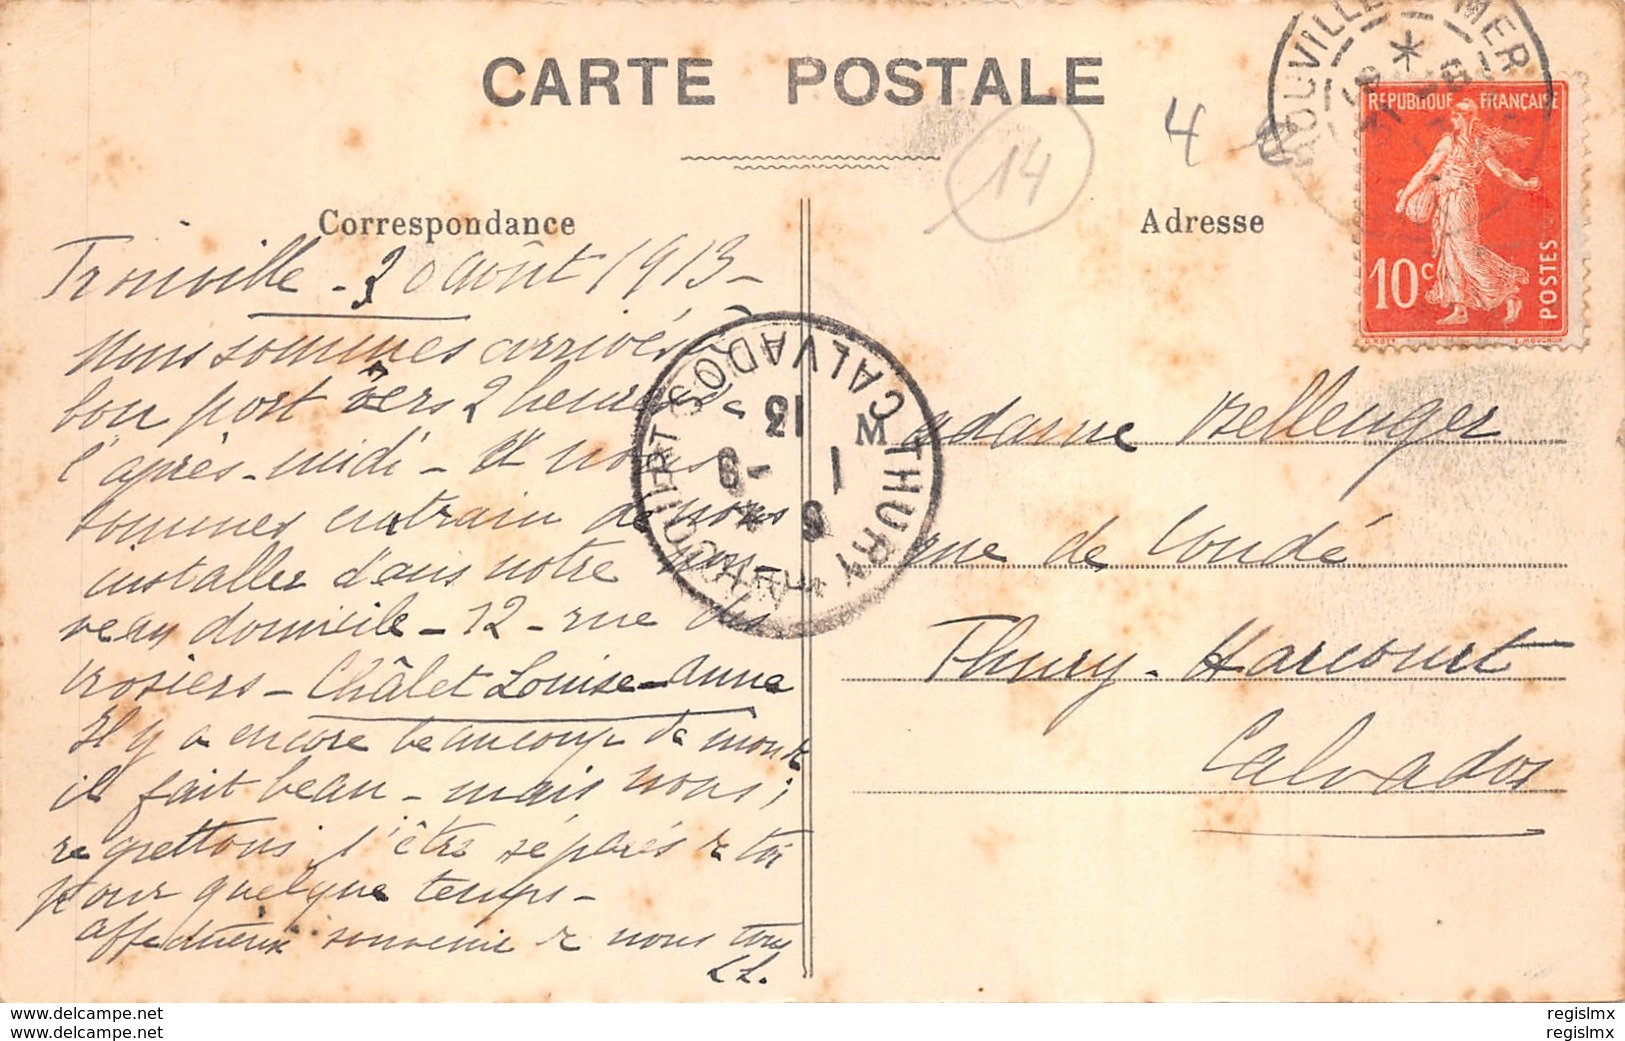 CARTE POSTALE
14
4
TROUVILLE S MER
REPUBLIQUE FRANÇAISE
10c
POSTES
Correspondance
Adresse
Trouville - 30 août 1913 -
Nous sommes arrivés à
bon port vers 2 heures de
l'après-midi - et nous
sommes entrain de nous
installer dans notre nou-
veau domicile - 12 - rue des
rosiers - Châlet Louise-Anne
Il y a encore beaucoup de monde
il fait beau - mais nous
regrettons d'être séparés de toi
pour quelque temps -
affectueux souvenir de nous tous
LL.
THURY-HARCOURT
CALVADOS
13
Madame Bellenger
rue de Condé
Thury-Harcourt
Calvados
regislmx
regislmx
regislmx
regislmx